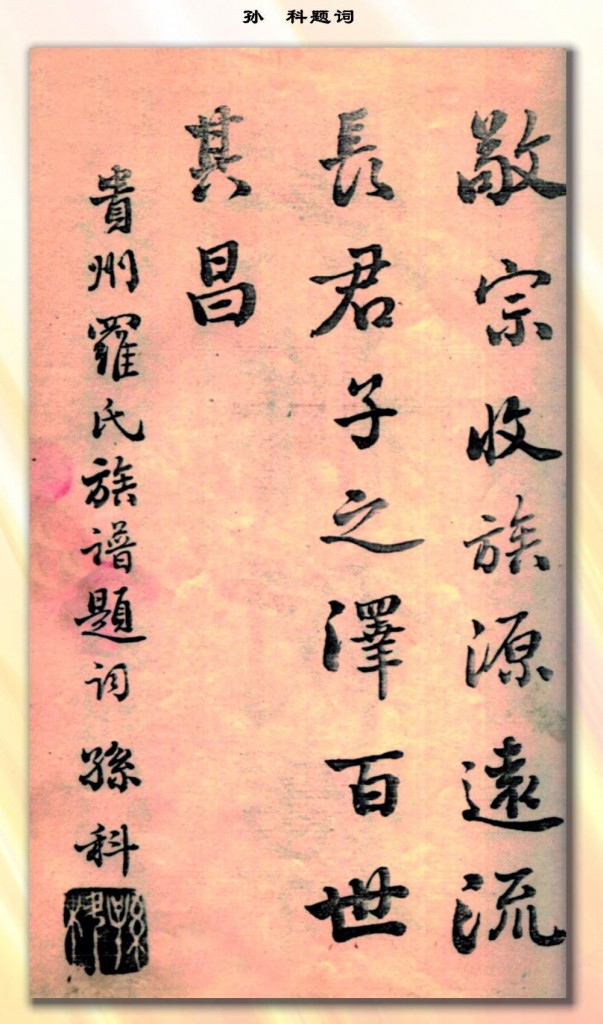 孙 科题词
敬宗收族源遠流
長君子之澤百世
其昌
貴州羅氏族譜題詞 孫科
孫科